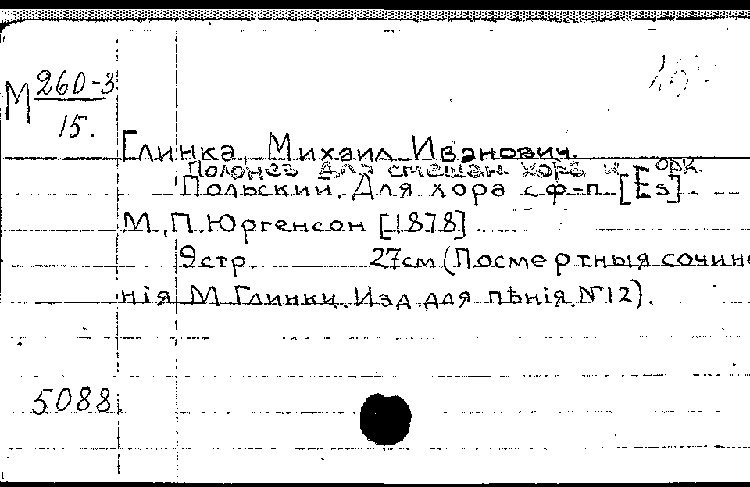 М 260-3
15.
Глинка, Михаил Иванович.
Полонез для смешан. хора и орк.
Польский. Для хора с ф-п. [Es]
М., П. Юргенсон [1878]
9 стр. 27 см (Посмертныя сочине
нія М. Глинки. Изд. для пѣнія, № 12).
5088.